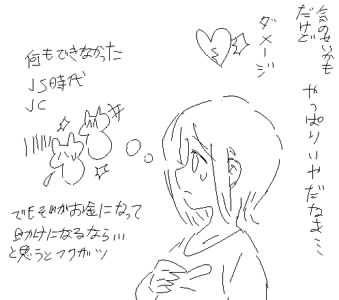 気のせいかも
だけど
やっぱりいやだなぁ…
ダメージ
何もできなかった
JS時代
JC
でもそれがお金になって
助けになるなら…
と思うとフクザツ